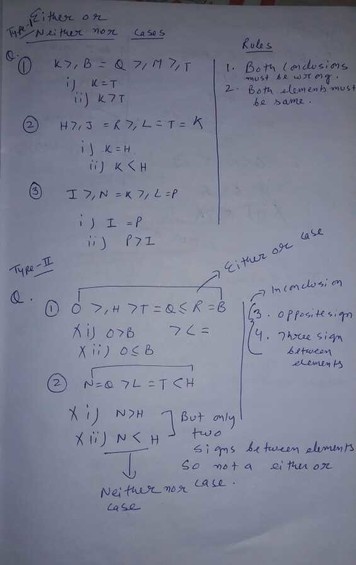 Either or
Type-I Neither nor Cases
Rules
Q.
① K>, B = Q >, M >, T
i) K=T
ii) K>T
1. Both Conclusions must be wrong.
2. Both elements must be same.
② H>, J = R>, L = T = K
i) K=H
ii) K<H
③ I >, N = K >, L=P
i) I = P
ii) P>I
Type-II
Either or case
Q.
① O >, H > T = Q ≤ R = B
X i) O>B >L=
X ii) O≤B
In conclusion
3. opposite sign
4. Three sign between elements
② N=Q >L = T < H
X i) N>H
X ii) N < H
But only two signs between elements
So not a either or case.
Neither nor case